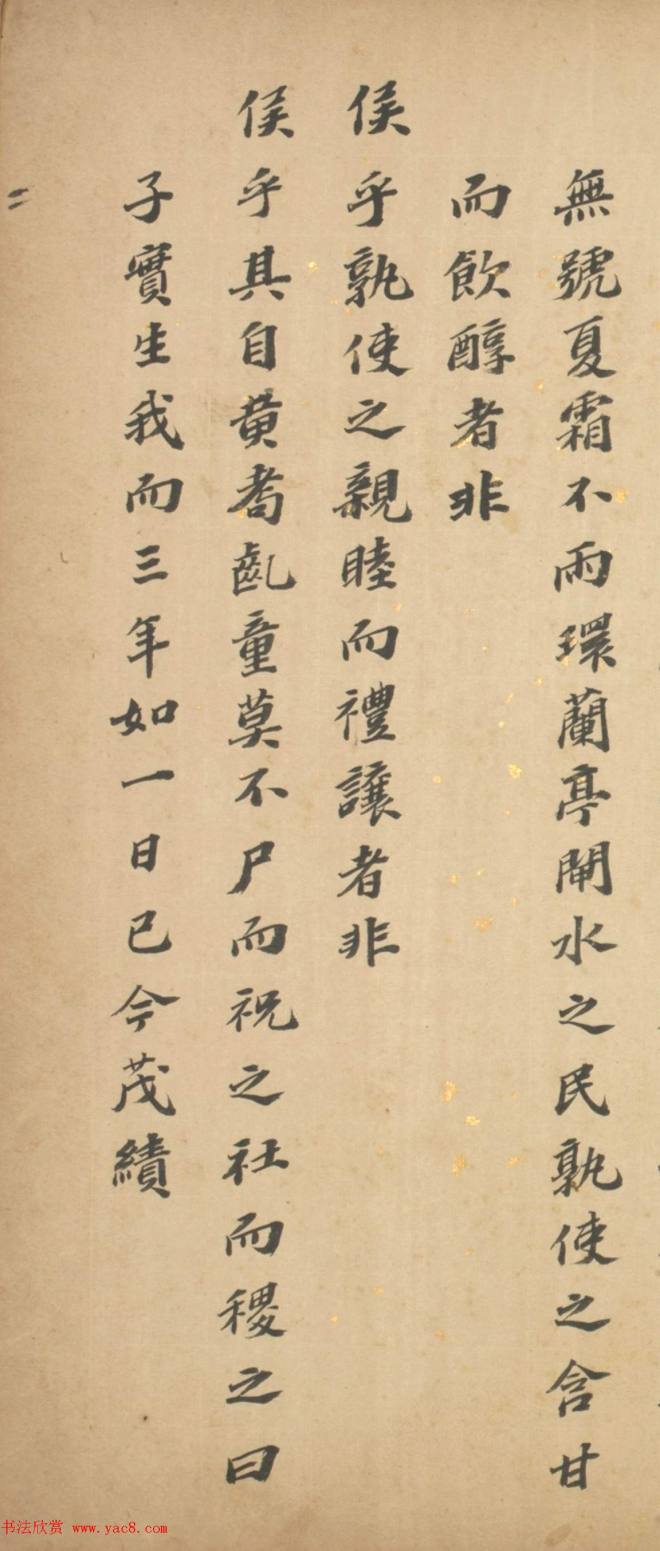 無號夏霜不雨環蘭亭閘水之民孰使之含甘
而飲醇者非
侯乎孰使之親睦而禮讓者非
侯乎其自黄耉齔童莫不尸而祝之社而稷之曰
子實生我而三年如一日已今茂績
书法欣赏 www.yac8.com